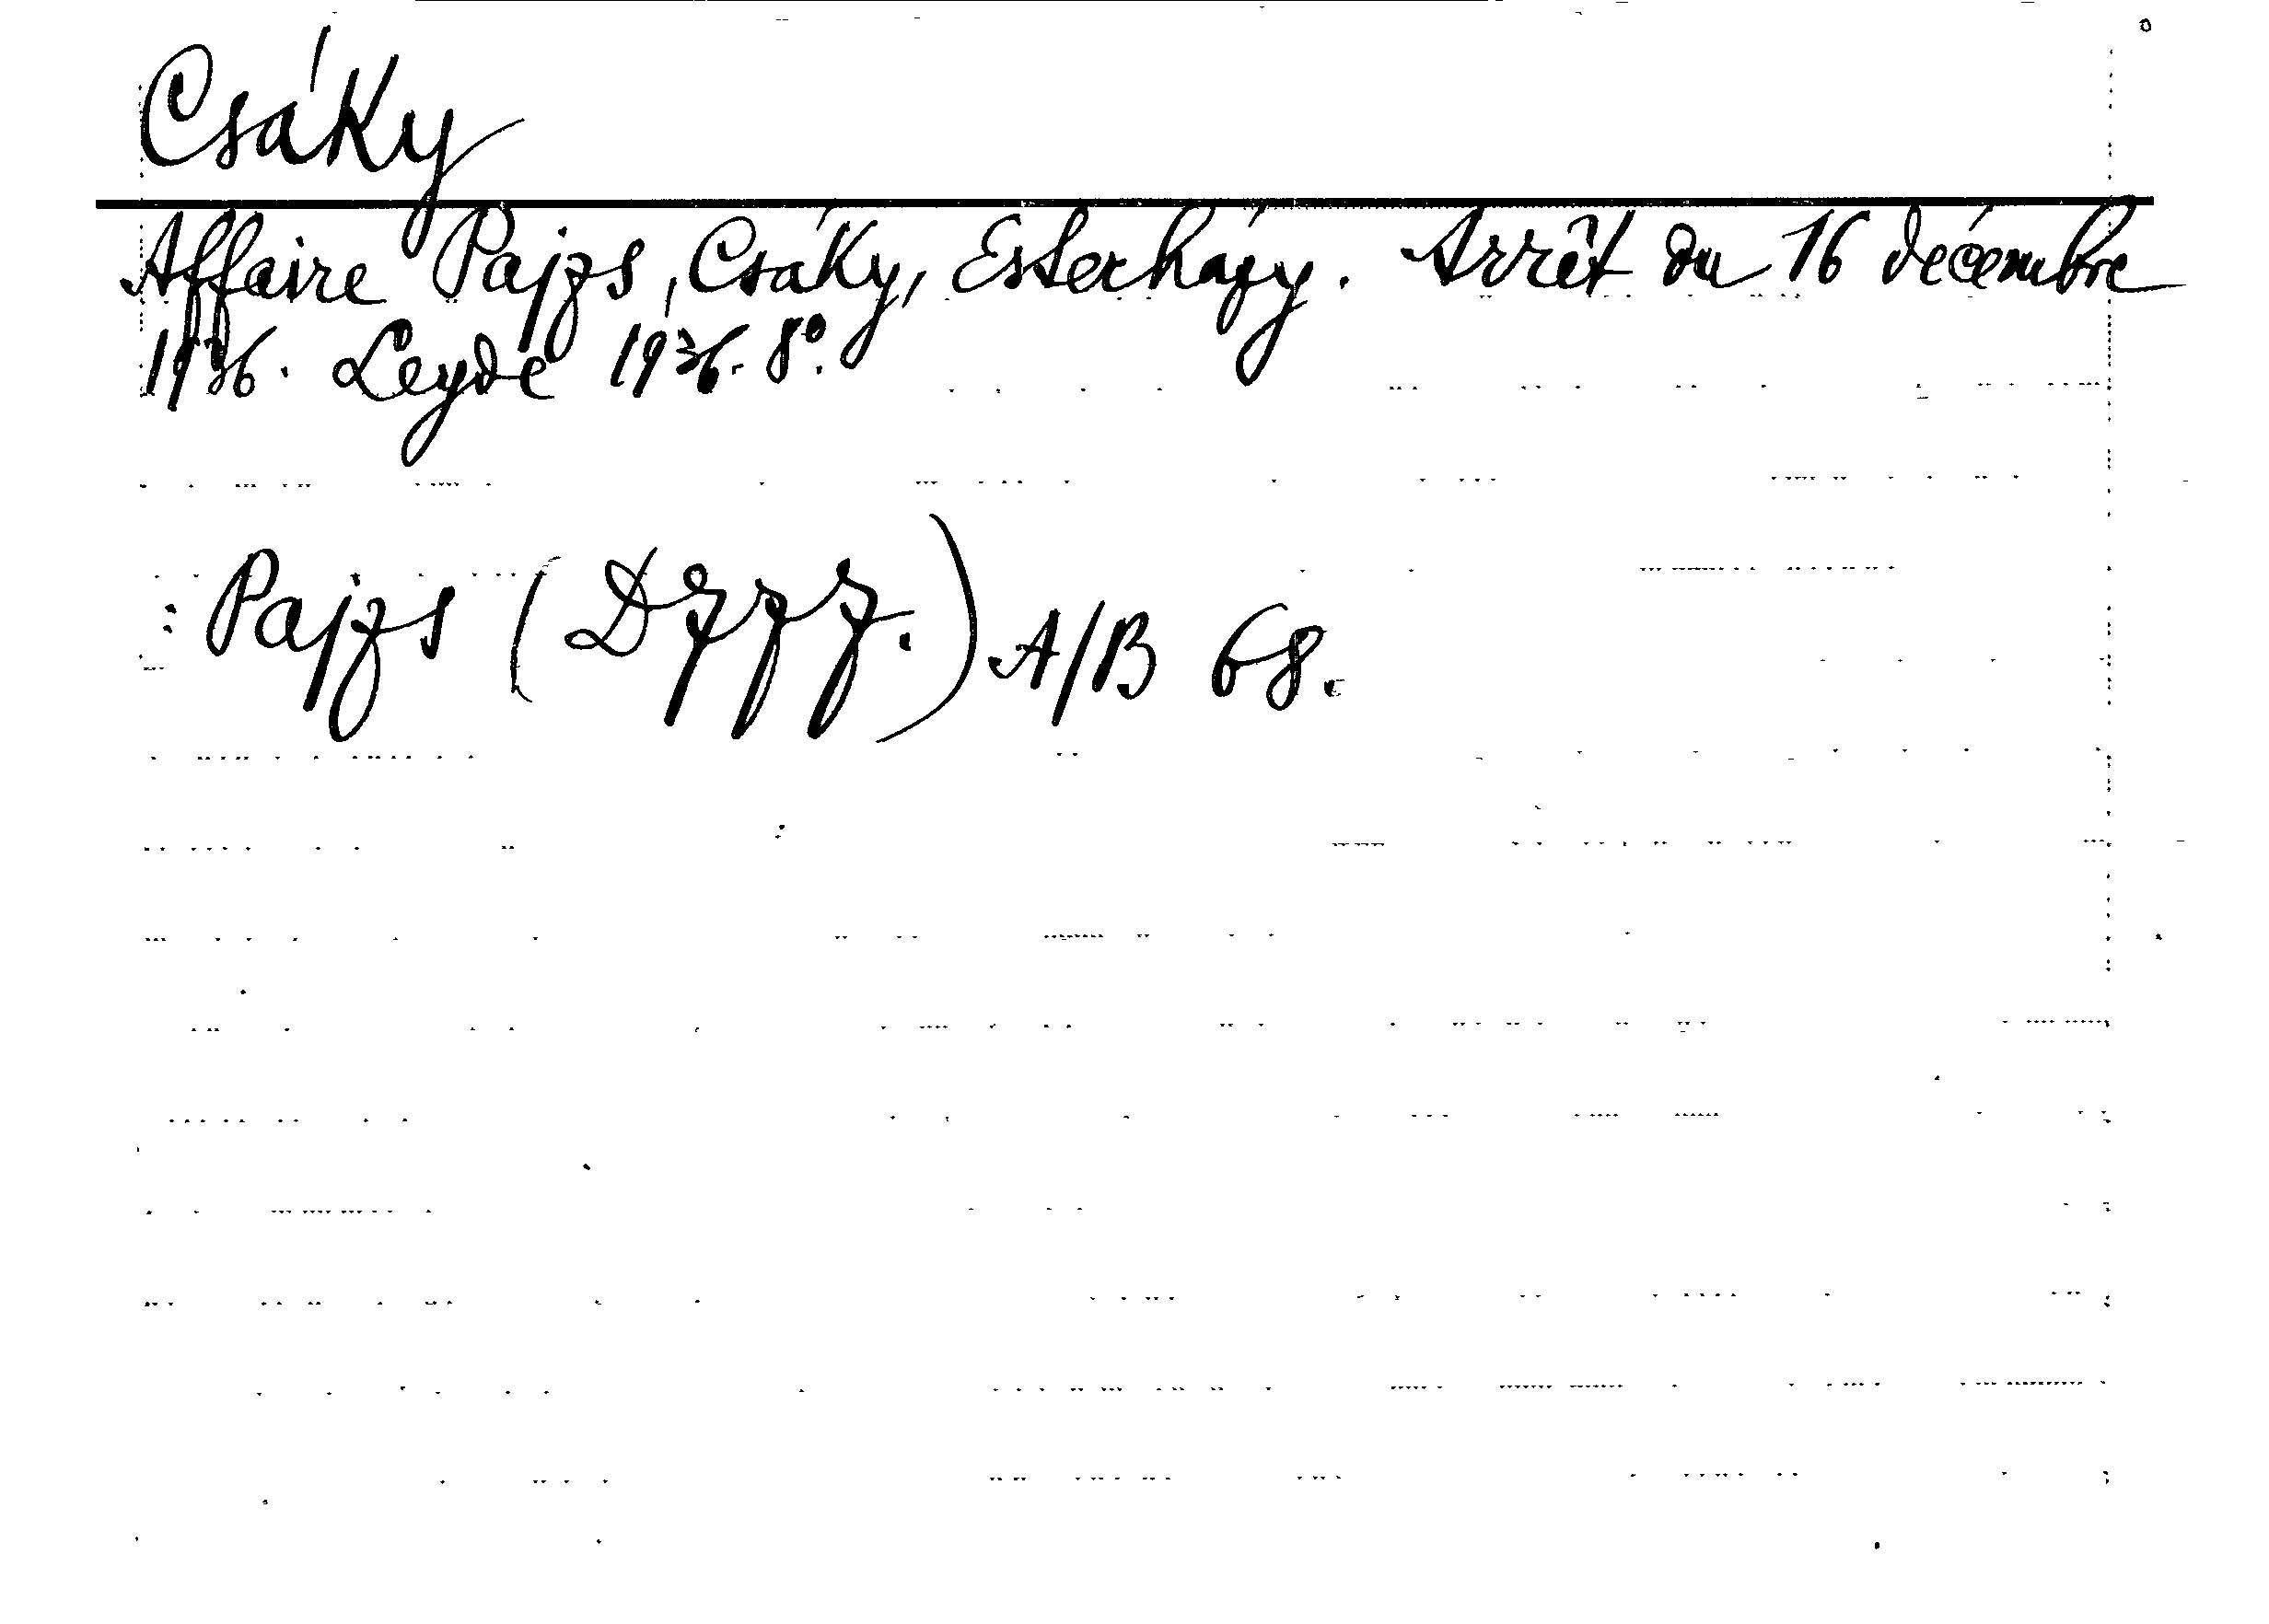 Csáky
Affaire Pajzs, Csáky, Esterházy. Arrêt du 16 décembre
1936. Leyde 1936. 8°.
: Pajzs (Dzzz.) A/B 68.